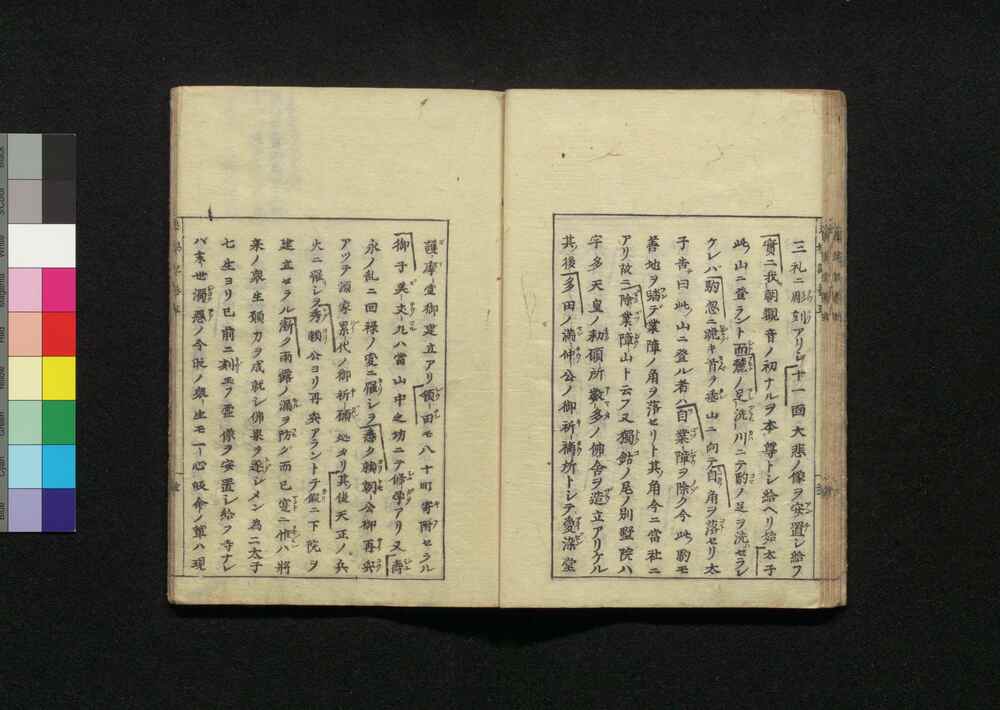 三礼ニ彫刻アリシ十一面大悲ノ像ヲ安置シ給フ
實ニ我朝觀音ノ初ナルヲ本尊トシ給ヘリ始太子
此山ニ登ラント面麓ノ足洗川ニテ駒ノ足ヲ洗セラレ
ケレバ駒忽ニ跪キ首ヲ垂山ニ向テ自角ヲ落セリ太
子告曰此山ニ登ル者ハ自業障ヲ除ク今此駒モ
善地ヲ踏デ業障ノ角ヲ落セリト其角今ニ當社ニ
アリ故ニ除業障山ト云フ又獨鈷ノ尾ノ別墅院ハ
宇多天皇ノ勅願所數多ノ佛舎ヲ造立アリケル
其後多田ノ満仲公ノ御祈祷所トシテ愛染堂
護摩堂御建立アリ領田モ八十町寄附セラル
御子美丈丸ハ當山中之坊ニテ修學アリ又壽
永ノ乱ニ回禄ノ変ニ罹シヲ悉ク頼朝公御再興
アツテ源家累代ノ御祈祷処タリ其後天正ノ兵
火ニ罹シヲ秀頼公ヨリ再興アラントテ假ニ下院ヲ
建立セラル漸ク雨露ノ漏ヲ防グ而已寔ニ惟ハ將
来ノ衆生願力ヲ成就シ佛果ヲ遂シメン為ニ太子
七生ヨリ已前ニ刻玉フ霊像ヲ安置シ給フ寺ナレ
バ末世濁悪ノ今時ノ衆生モ一心皈命ノ輩ハ現